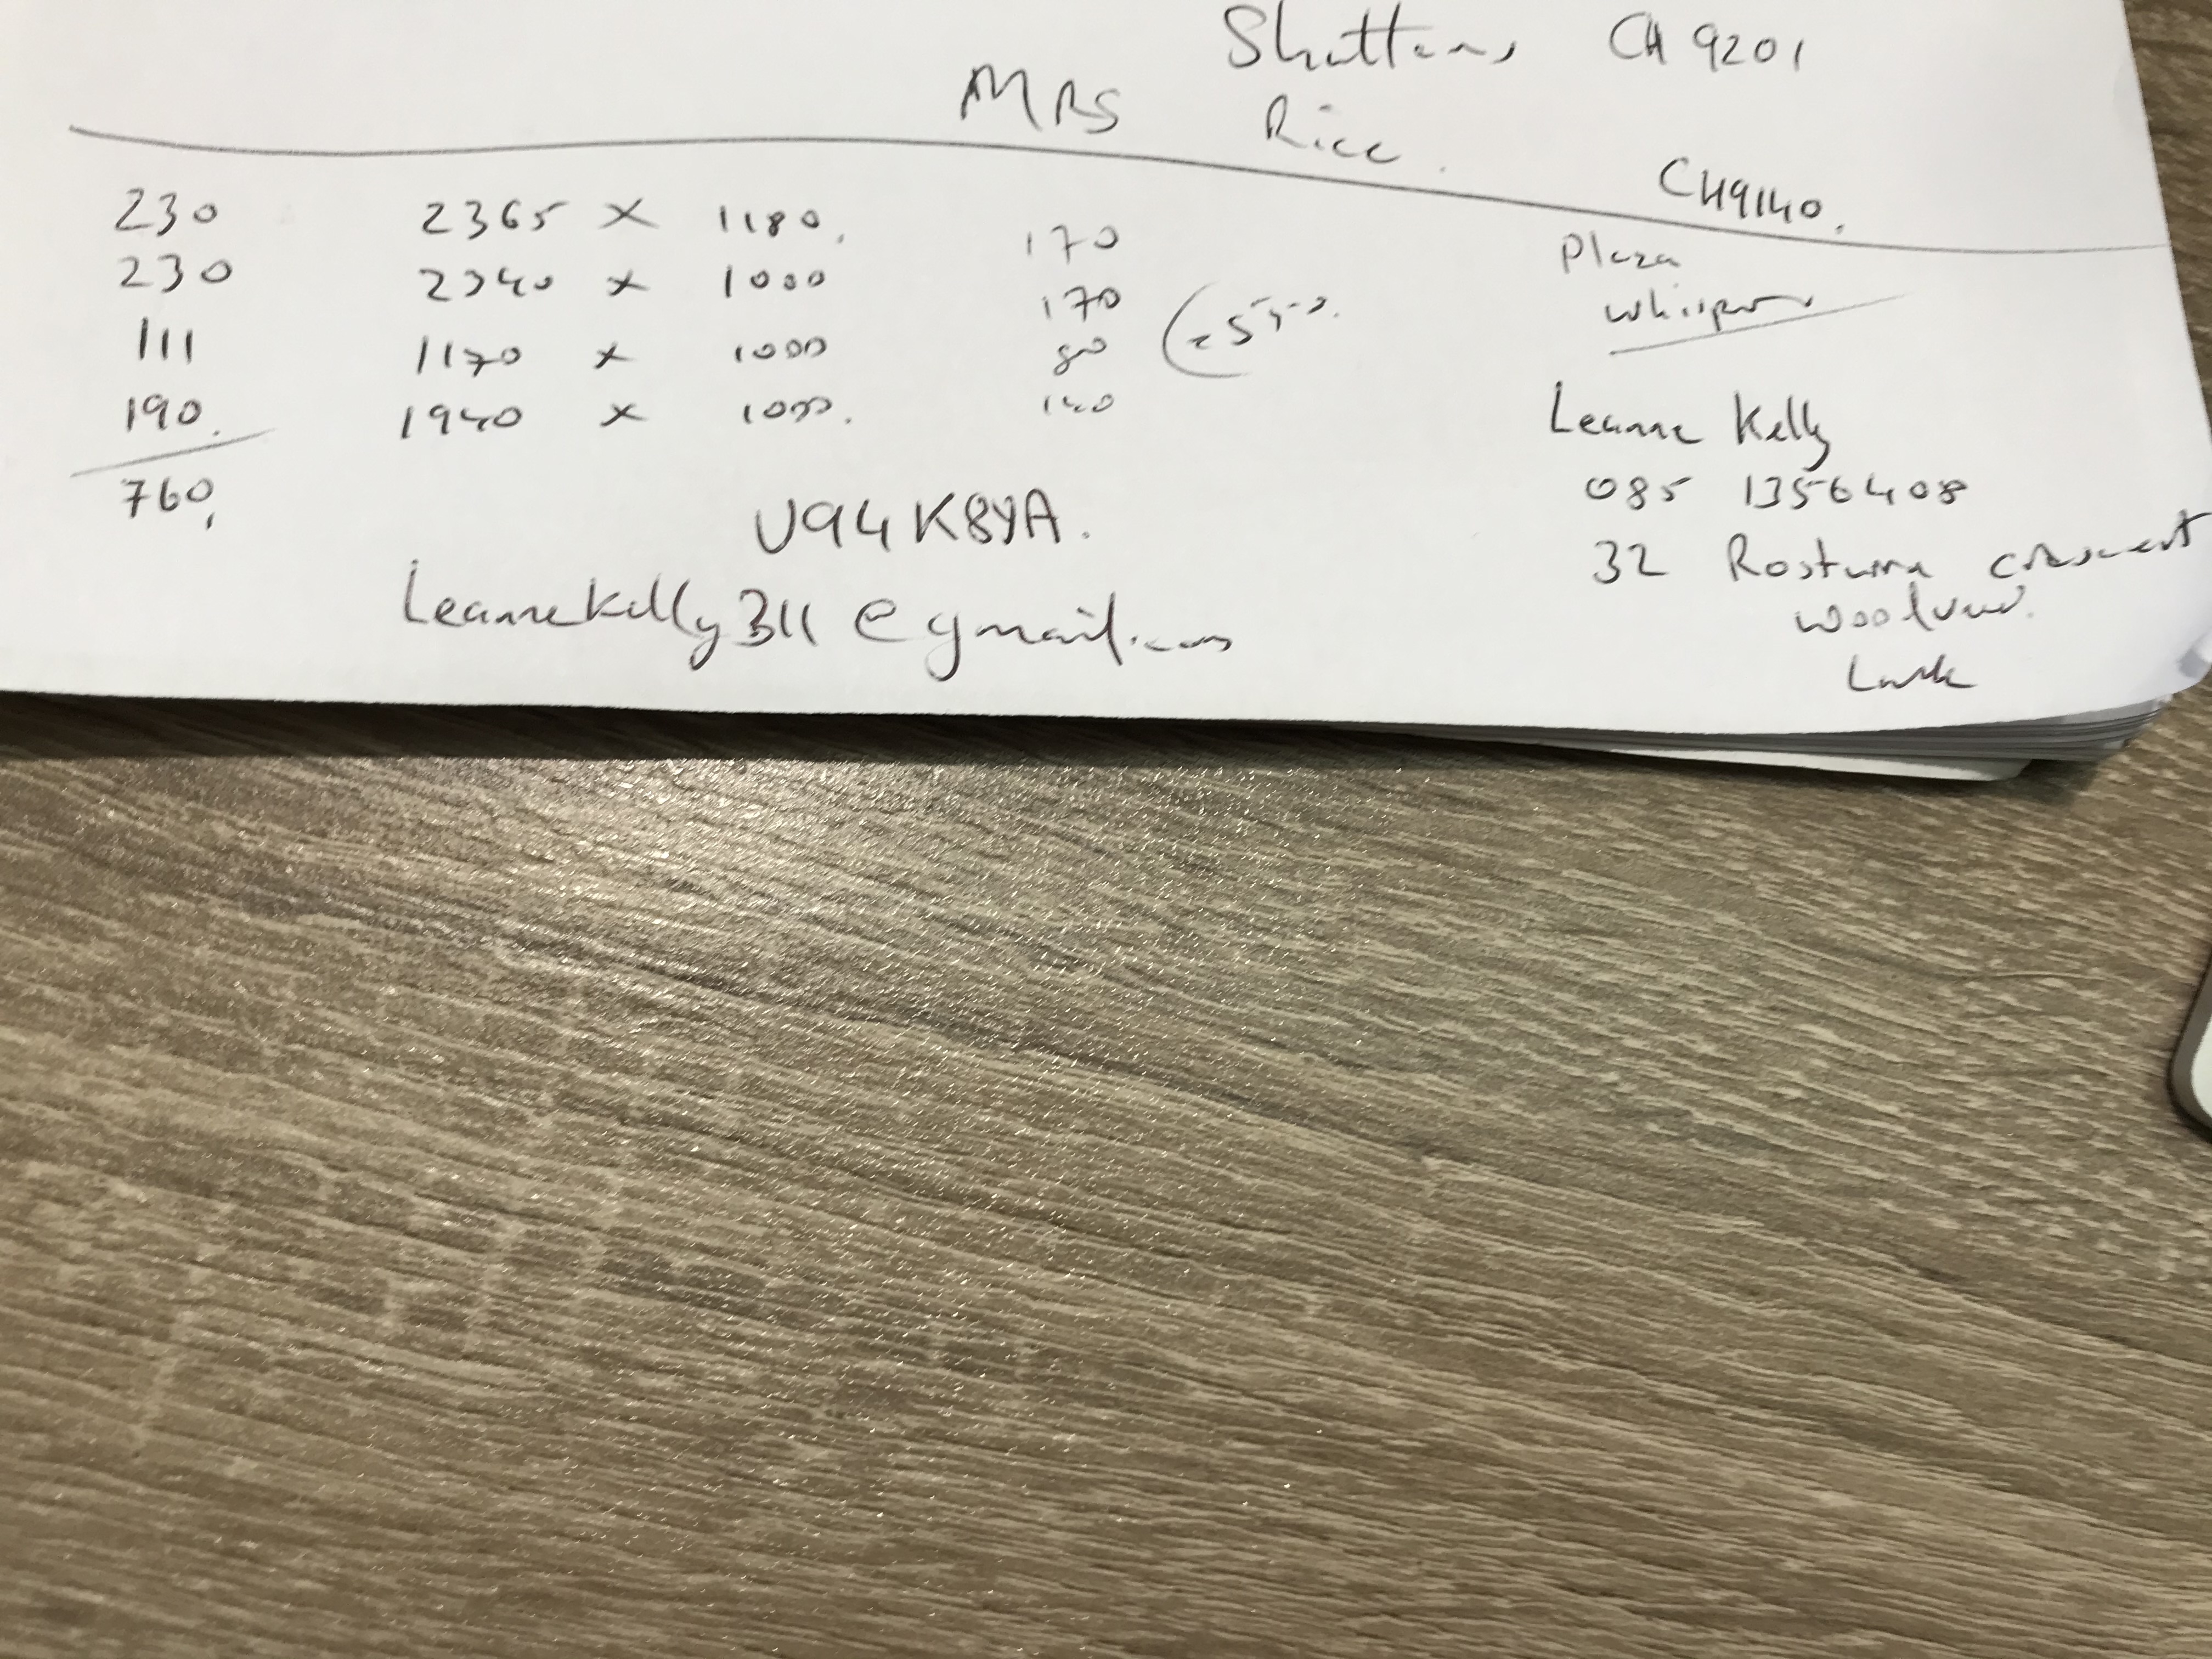 Shutters CH 9201
MRS Rice.
CH9140.
230 2365 x 1180. 170
230 2340 x 1000 170
111 1170 x 1000 80 (= 550.
190. 1940 x 1000. 140
760,
Plaza
Whisper
Leanne Kelly
085 1356408
32 Rostura crescent
Lusk
U94K89A.
Leannekelly311@gmail.com